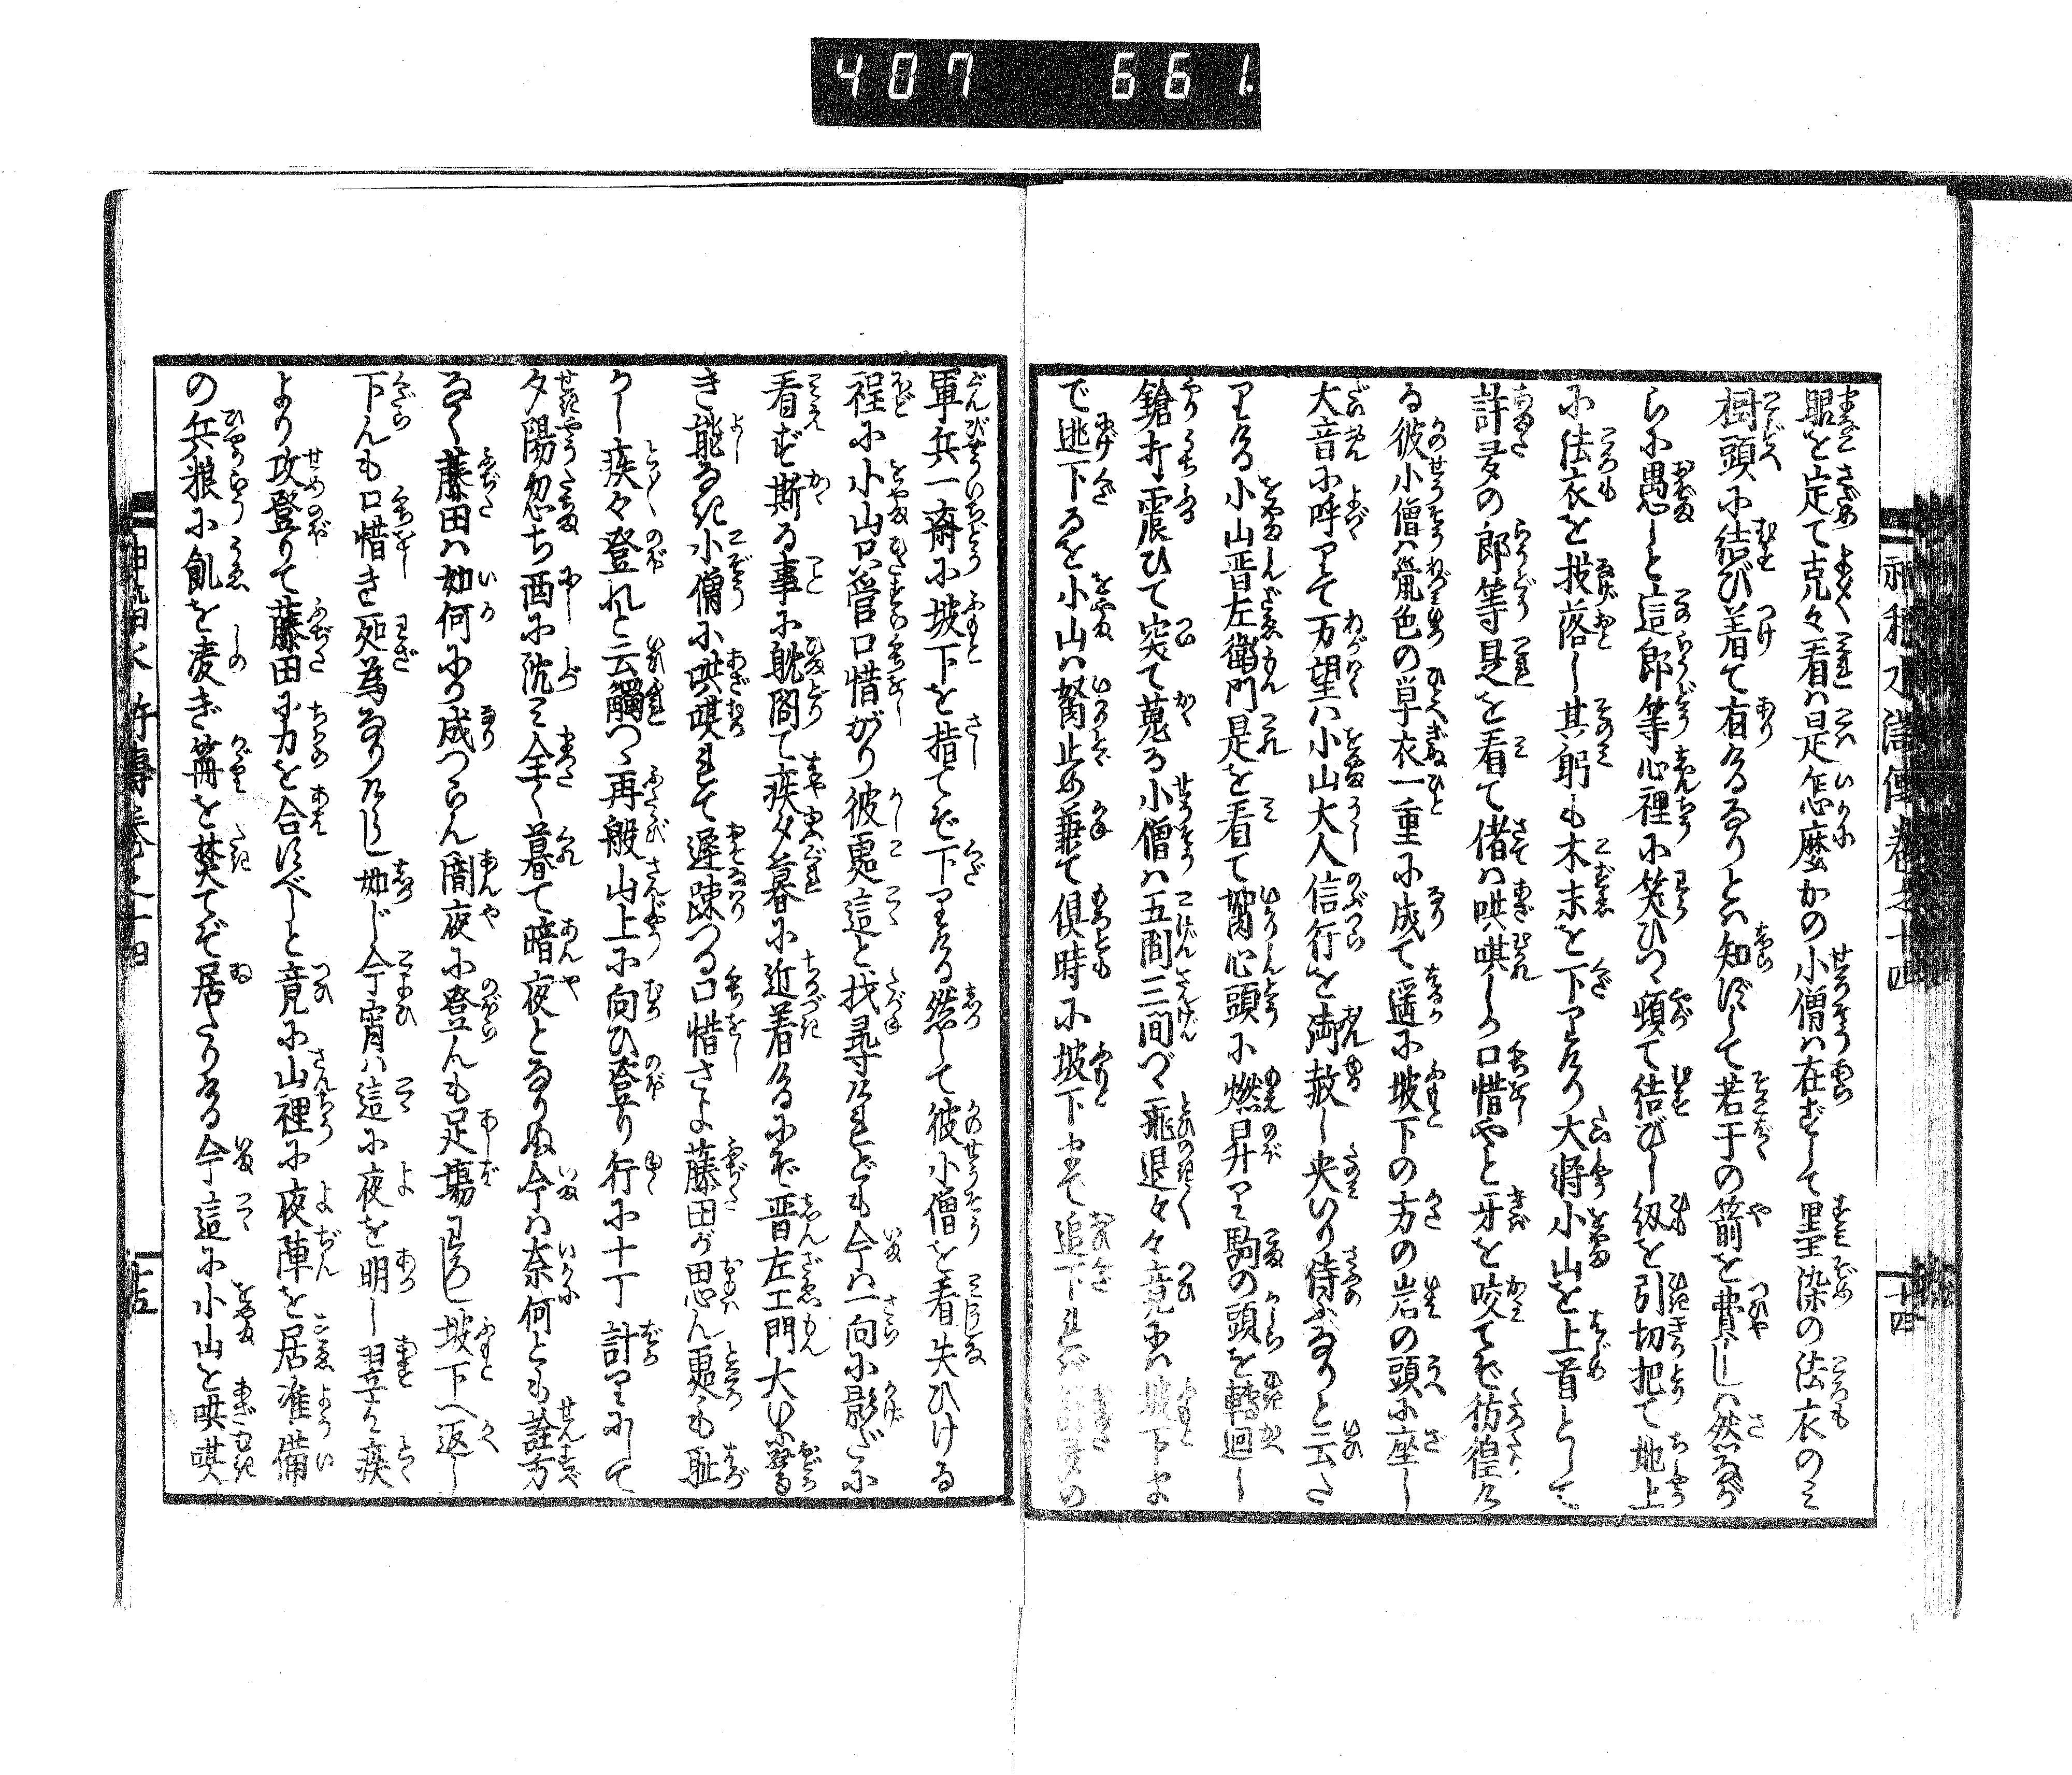 407 661.
眼を定て克々看は是怎麼かの小僧ハ在ずして墨染の法衣のミ
樹頭に結び着て有けるなりとハ知ずして若干の箭を費しハ然るが
らに愚しと這郎等心裡に笑ひつゝ頓て結びし紐を引切把て地上
に法衣を投落し其躬も木末を下りたり大將小山を上首として
許多の郎等是を看て偖ハ哄哄しか口惜やと牙を咬てぞ彷徨ける
る彼小僧ハ鼠色の単衣一重に成て遥に坡下の方の岩の頭に座し
大音に呼りて万望ハ小山大人信行を御赦し夾いり侍ふなりと云た
りける小山晋左衛門是を看て嗔心頭に燃昇り駒の頭を轉廻し
鎗打震ひて突て蒐る小僧ハ五間三間づゝ飛退々々竟にハ坡下ま
で逃下るを小山ハ嗔止め兼て倶時に坡下まで追下れば許多の
軍兵一齊に坡下を指てぞ下りける然して彼小僧を看失ひける
程に小山只管口惜がり彼處這と找尋けれども今ハ一向に影だに
看ず斯る事に躭閣て疾夕暮に近着けるにぞ晋左エ門大いに驚
き能なき小僧に哄哄れて遅疎つる口惜さよ藤田が思ん處も耻
かし疾々登れと云觸つゝ再般山上に向ひ登り行に十丁計りにして
夕陽忽ち西に沈ミ全く暮て暗夜となりぬ今ハ奈何とも詮方
なく藤田ハ如何に成つらん闇夜に登んも足塲わろし坡下へ返し
下んも口惜き所為なりけらし如じ今宵ハ這に夜を明し翌こそ疾
より攻登りて藤田に力を合すべしと竟に山裡に夜陣を居准備
の兵粮に飢を凌ぎ篝を焚てぞ居たりける今這に小山を哄哄
十四